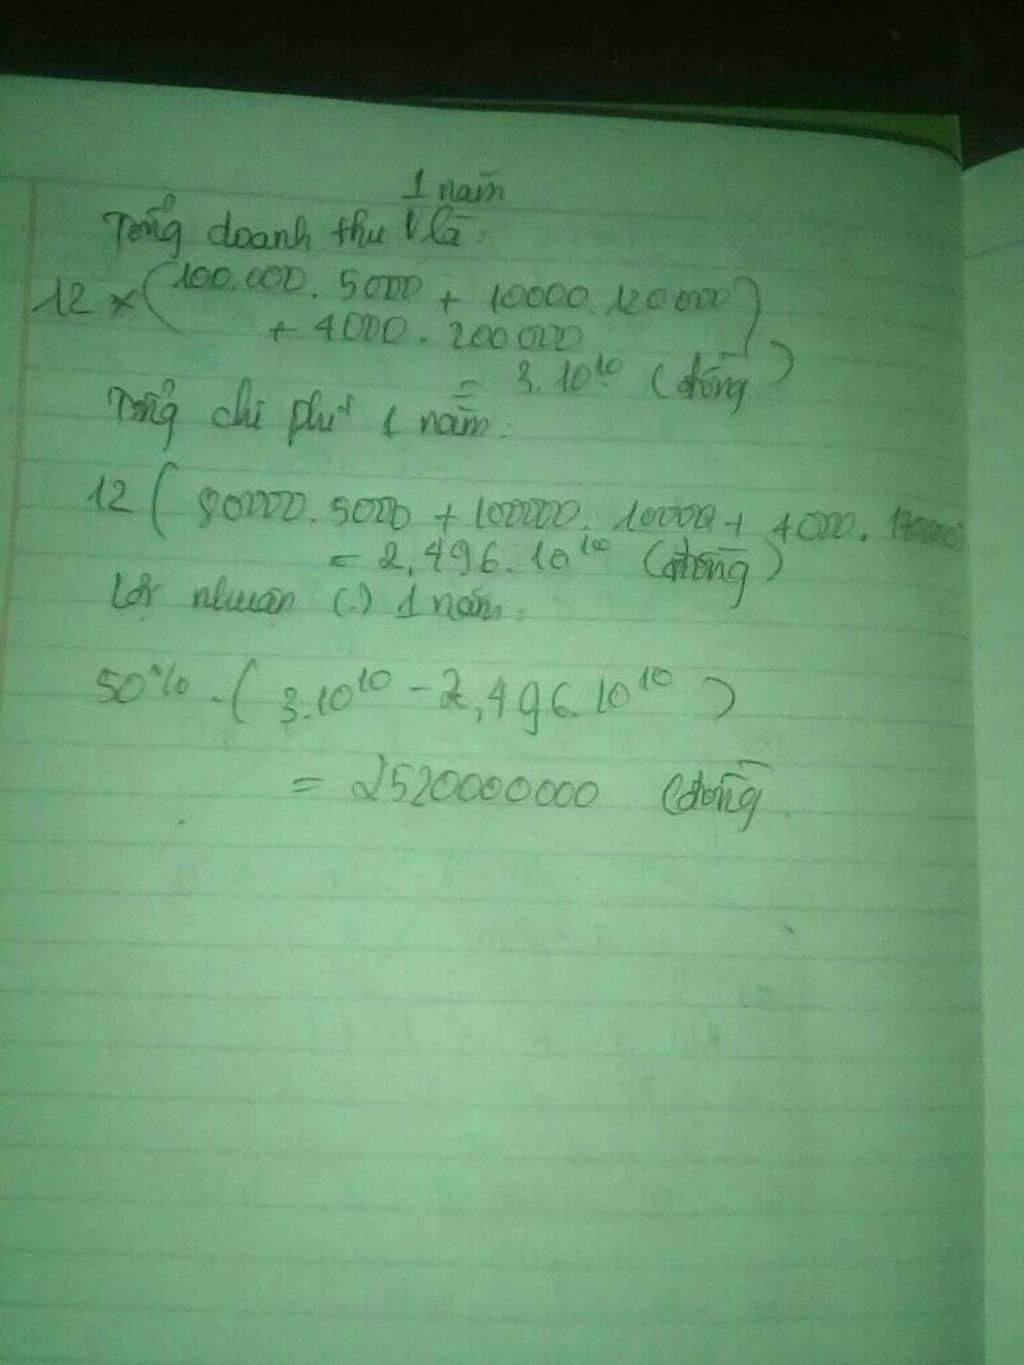 1 năm
Tổng doanh thu V là:
12 × ( 100.000. 5000 + 10000. 120000 )
+ 4000. 200000
= 3.10¹⁰ (đồng)
Tổng chi phí 1 năm:
12 ( 80000. 5000 + 100000. 10000 + 4000. 170000
= 2,496. 10¹⁰ (đồng)
Lợi nhuận (.) 1 năm:
50% .( 3.10¹⁰ - 2,496. 10¹⁰ )
= 2520000000 (đồng)